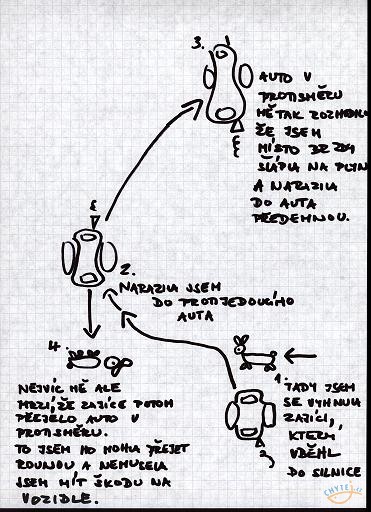 3.
AUTO V
PROTISMĚRU
MĚ TAK ROZHODILO
ŽE JSEM
MÍSTO BRZDY
ŠLÁPLA NA PLYN
A NARAZILA
DO AUTA
PŘEDEMNOU.
2.
NARAZILA JSEM
DO PROTIJEDOUCÍHO
AUTA
1.
TADY JSEM
SE VYHNULA
ZAJÍCI,
KTERÝ
VBĚHL
DO SILNICE
4.
NEJVÍC MĚ ALE
MRZÍ, ŽE ZAJÍCE POTOM
PŘEJELO AUTO V
PROTISMĚRU.
TO JSEM HO MOHLA PŘEJET
ROVNOU A NEMUSELA
JSEM MÍT ŠKODU NA
VOZIDLE.
CHYTEJ.cz